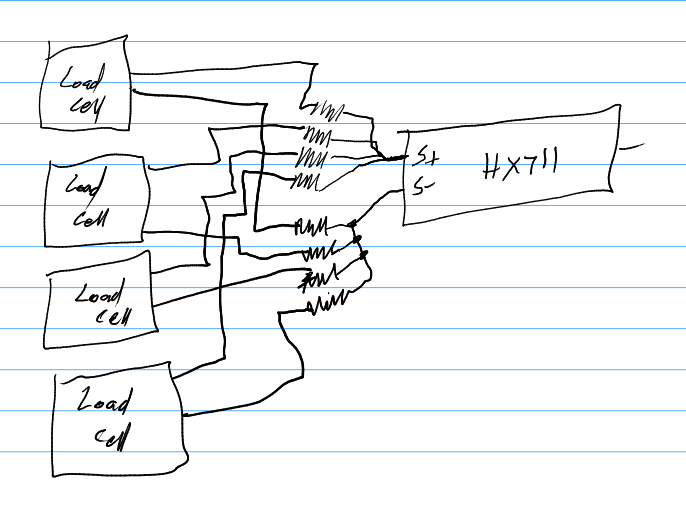 Load
cell
Load
cell
Load
cell
Load
cell
S+
S-
HX711